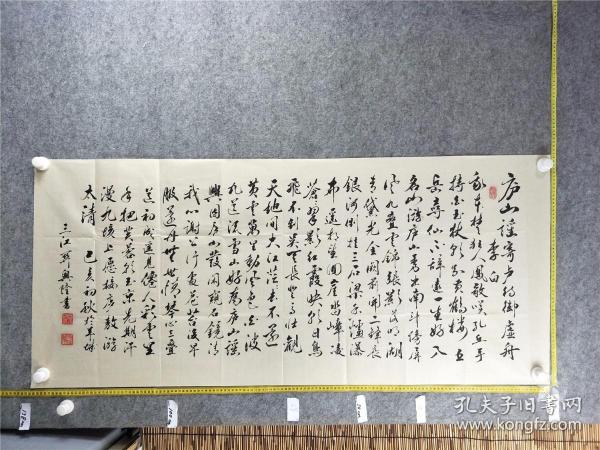 庐山谣寄卢侍御虚舟
李白
我本楚狂人凤歌笑孔丘手
持绿玉杖朝别黄鹤楼五
岳寻仙不辞远一生好入
名山游庐山秀出南斗傍屏
风九叠云锦张影落明湖
青黛光金阙前开二峰长
银河倒挂三石梁香炉瀑
布遥相望回崖沓嶂凌
苍翠影红霞映朝日鸟
飞不到吴天长登高壮观
天地间大江茫茫去不还
黄云万里动风色白波
九道流雪山好为庐山谣
兴因庐山发闲窥石镜清
我心谢公行处苍苔没早
服还丹无世情琴心三叠
道初成遥见仙人彩云里
手把芙蓉朝玉京先期汗
漫九垓上愿接卢敖游
太清 己亥初秋於
三江 兴隆书
孔夫子旧书网
www.kongfz.com